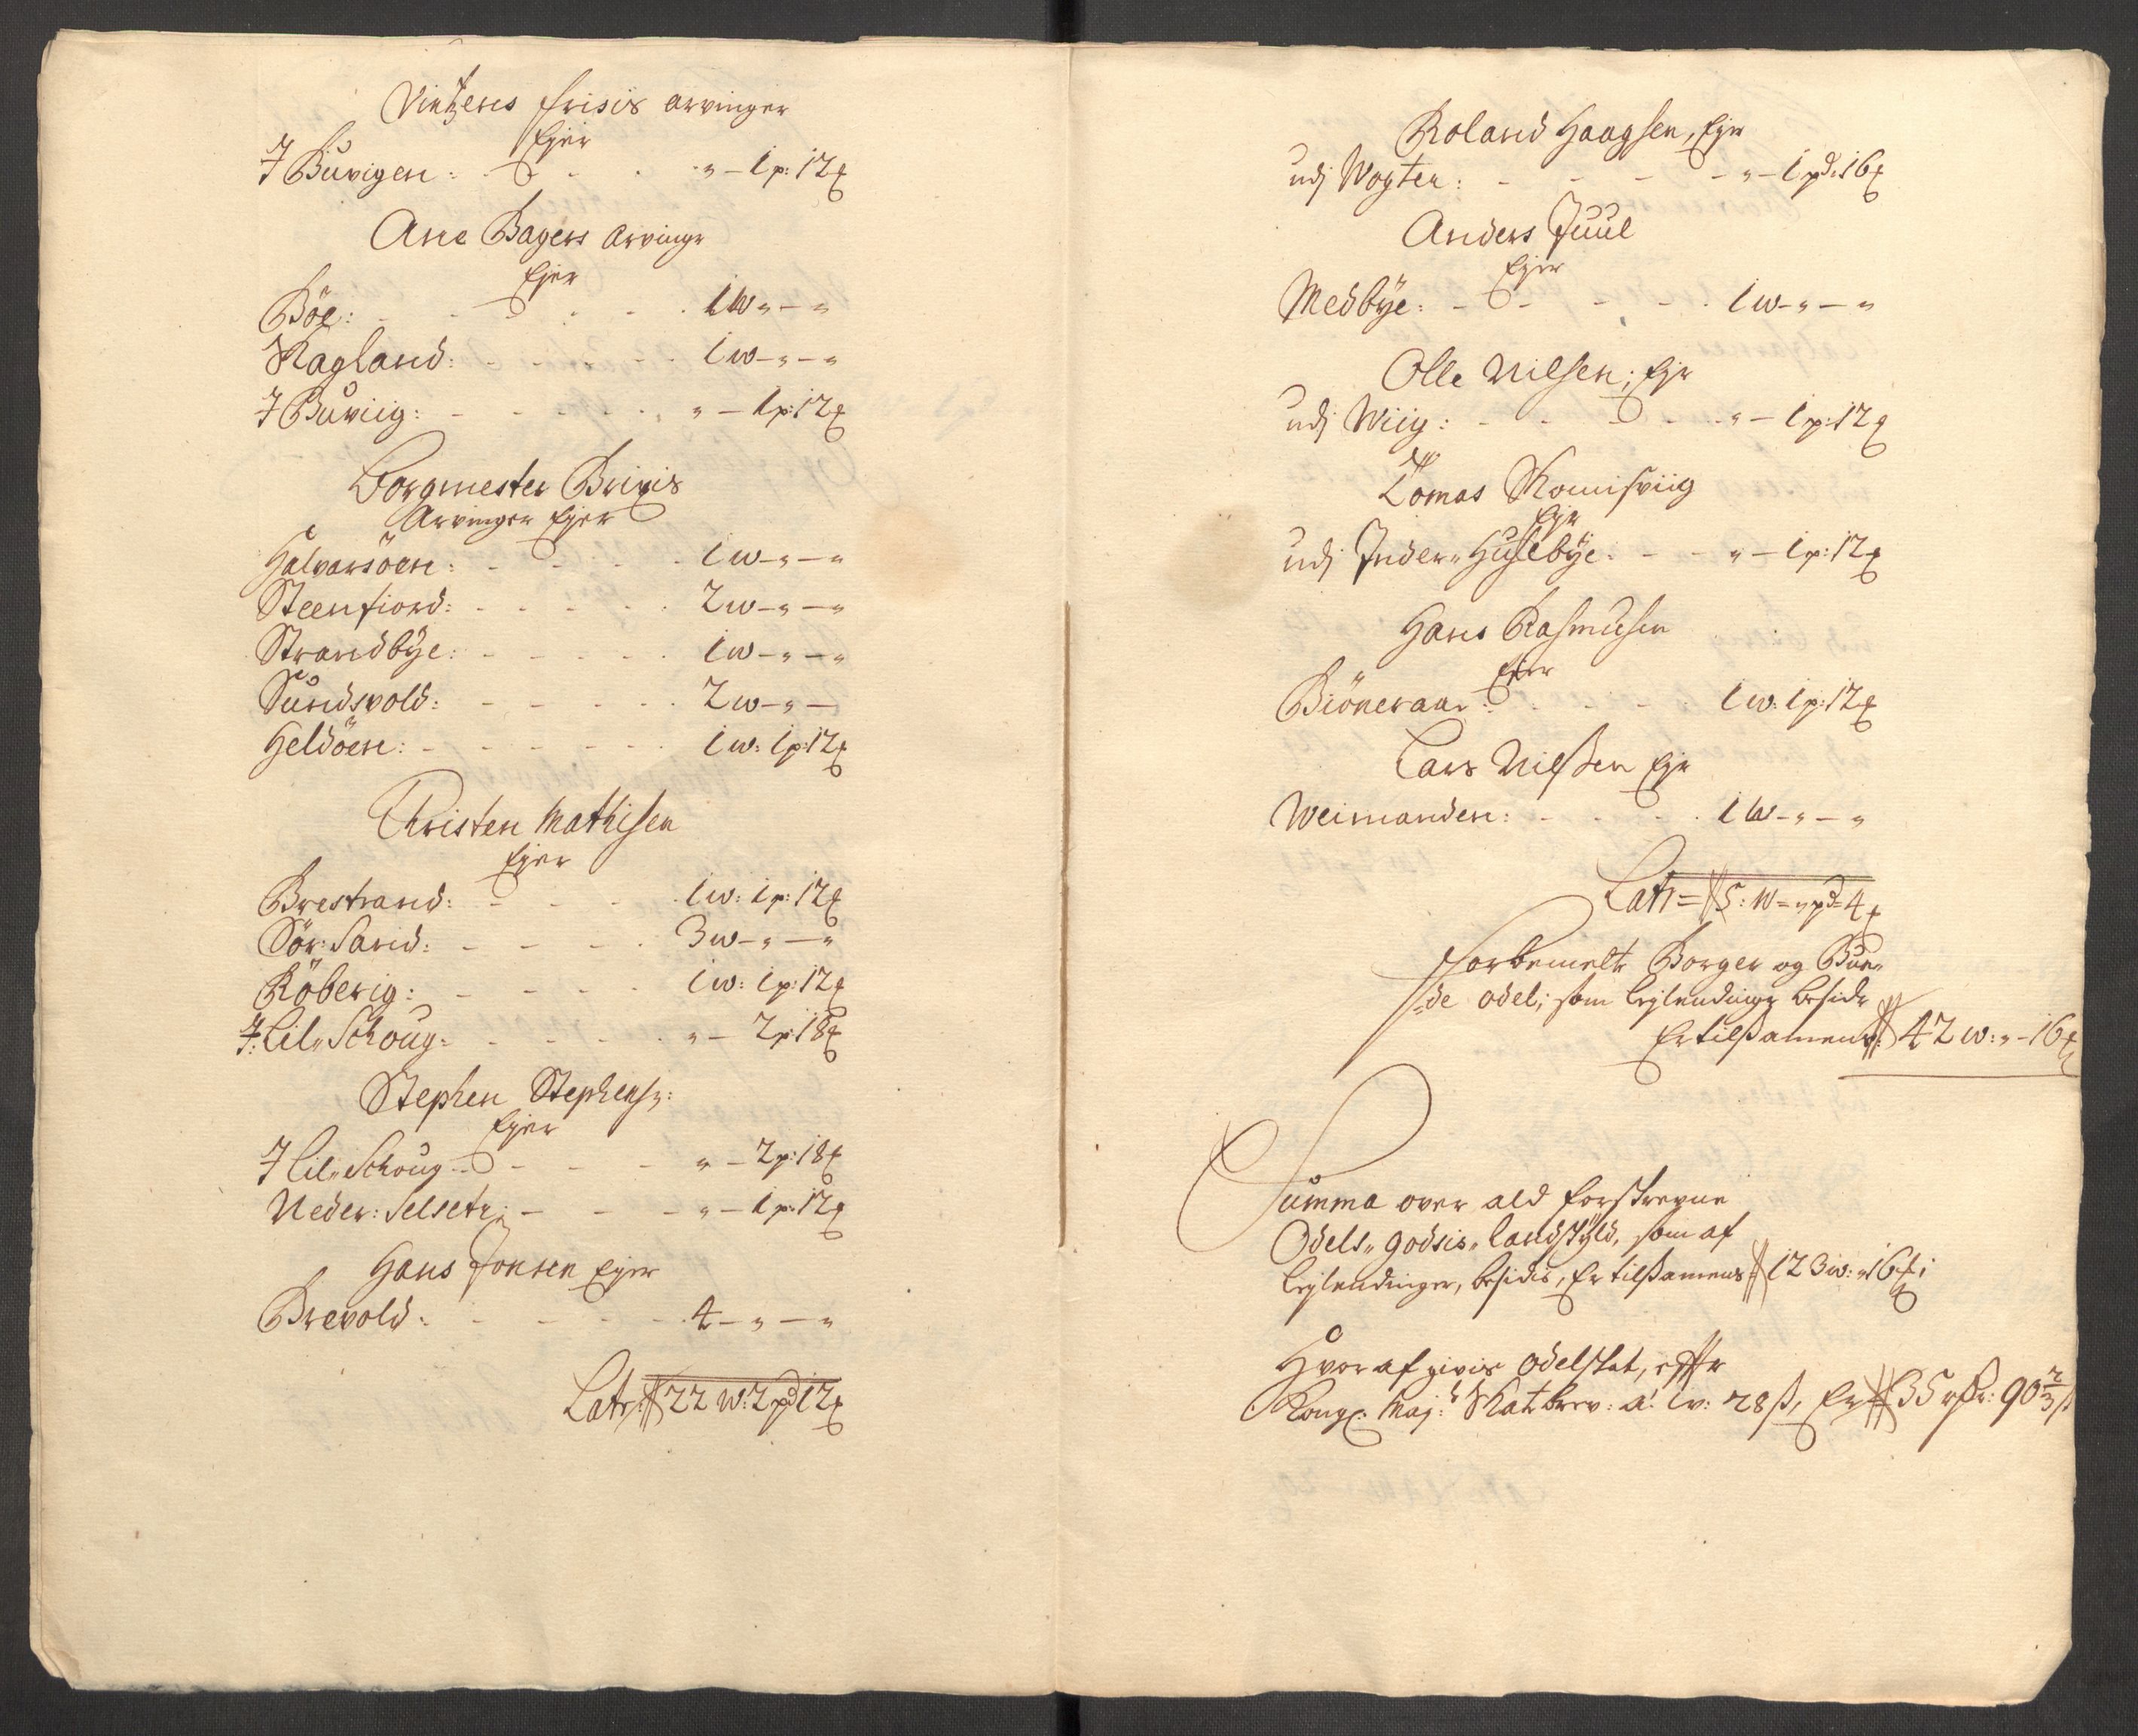 Vintzens frisis arvinger
Ejer
I Buvigen: - - - „ - 1 p: 12 ℔
Ane Bagers arvingr
Ejer
Böe: - - - - 1 w „ - „
Ragland: - - - - 1 w - „ - „
I Buviig: - - - - „ - 1 p: 12 ℔
Borgmester Brixis
Arvinger Ejer
Halvarsöen: - - - 1 w - „ - „
Steenfiord: - - - - 2 w - „ - „
Strandbÿe: - - - - 1 w - „ - „
Sundsvold: - - - - 2 w - „ -
Heldöen: - - - - 1 w: 1 p: 12 ℔
Christen Mathisen
Ejer
Brestrand: - - - 1 w: 1 p: 12 ℔
Sör: Sand: - - - 3 w - „ - „
Röberig: - - - - 1 w: 1 p: 12 ℔
I: Lil„ Schoug: - - - - „ - 2 p: 18 ℔
Stephen Stephens:
Ejer
I Lil„ Schoug - - - - „ - 2 p: 18 ℔
Neder: Selsetr: - - - „ - 1 p: 12 ℔
Hans Jonsen Ejer
Brevold: - - - - 4 - „ - „
Latr: 22 w: 2 pd 12 ℔
Roland Haagsen, Ejer
udj Wogter: - - - - „ - 1 pd: 16 ℔
Anders Juul
Ejer
Medbÿe: - - - - 1 w - „ - „
Olle Nilsen; Ejr
udj Wiig: - - - - „ - 1 p: 12 ℔
Tomas Komisviig
Ejr
udj Inder„ Husebÿe: - - „ - 1 p: 12 ℔
Hans Rasmusen
Ejer
Biöneraar: - - - 1 w: 1 p: 12 ℔
Lars Nilssen Ejr
Weimanden: - - - 1 w - „ - „
Latr = 5: w = „ pd = 4 ℔
Forbemelte Borger og Bun„
de odel; som lejlendinge besidr
Er tilsamens 42 w: „ - 16 ℔
Summa over ald forskrevne
Odels„ godsis„ landskÿld, som af
lejlendinger, besidis, Er tilsamens 123 w: „ 16 ℔;
Hvor af givis odelskat, effter
Kongl: Maj: Skatbrev: a: 1 w: 28 ß, Er 35 rdlr: 90 2/3 ß